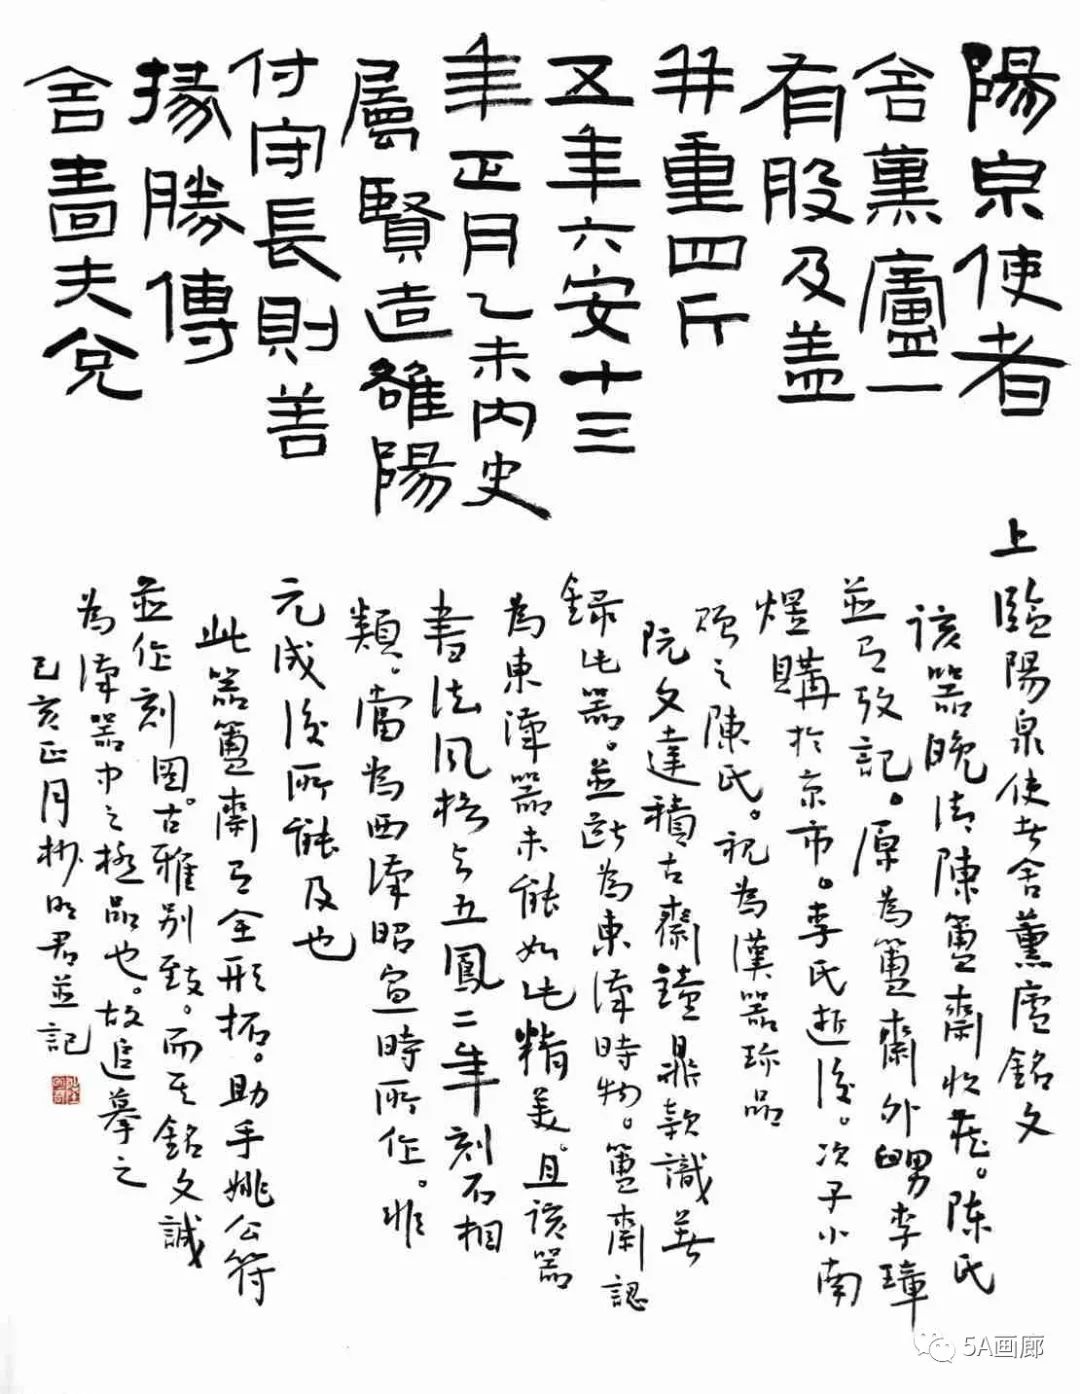 陽泉使者
舍薰廬一
有般及盖
并重四斤
五年六安十三
年正月乙未內史
屬賢造雒陽
付守長則善
掾勝傳
舍嗇夫兌
上臨陽泉使者舍薰廬銘文
該器晚清陳簠齋收藏。陳氏
並有攷記。原為簠齋外舅李璋
煜購於京市。李氏逝後。次子小南
歸之陳氏。視為漢器珍品
阮文達積古齋鐘鼎款識著
錄此器。並斷為東漢時物。簠齋認
為東漢器未能如此精美。且該器
書法風格与五鳳二年刻石相
類。當為西漢昭宣時所作。非
元成後所能及也
此器簠齋有全形拓。助手姚公符
並作刻圖。古雅別致。而其銘文誠
為漢器中之極品也。故追摹之
己亥正月彬明君並記
5A画廊